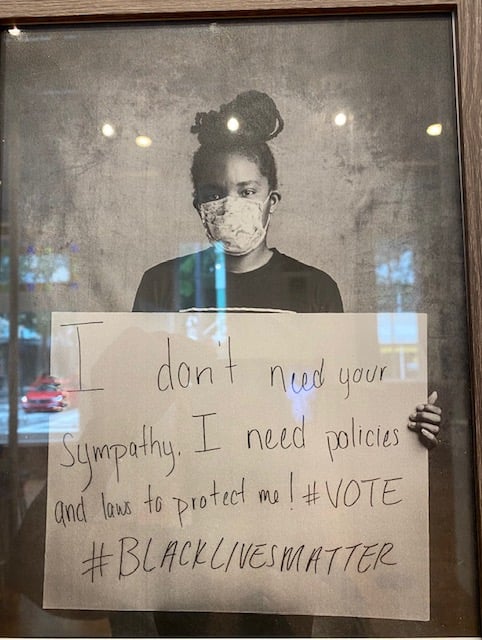 I don't need your
sympathy. I need policies
and laws to protect me! #VOTE
#BLACKLIVESMATTER